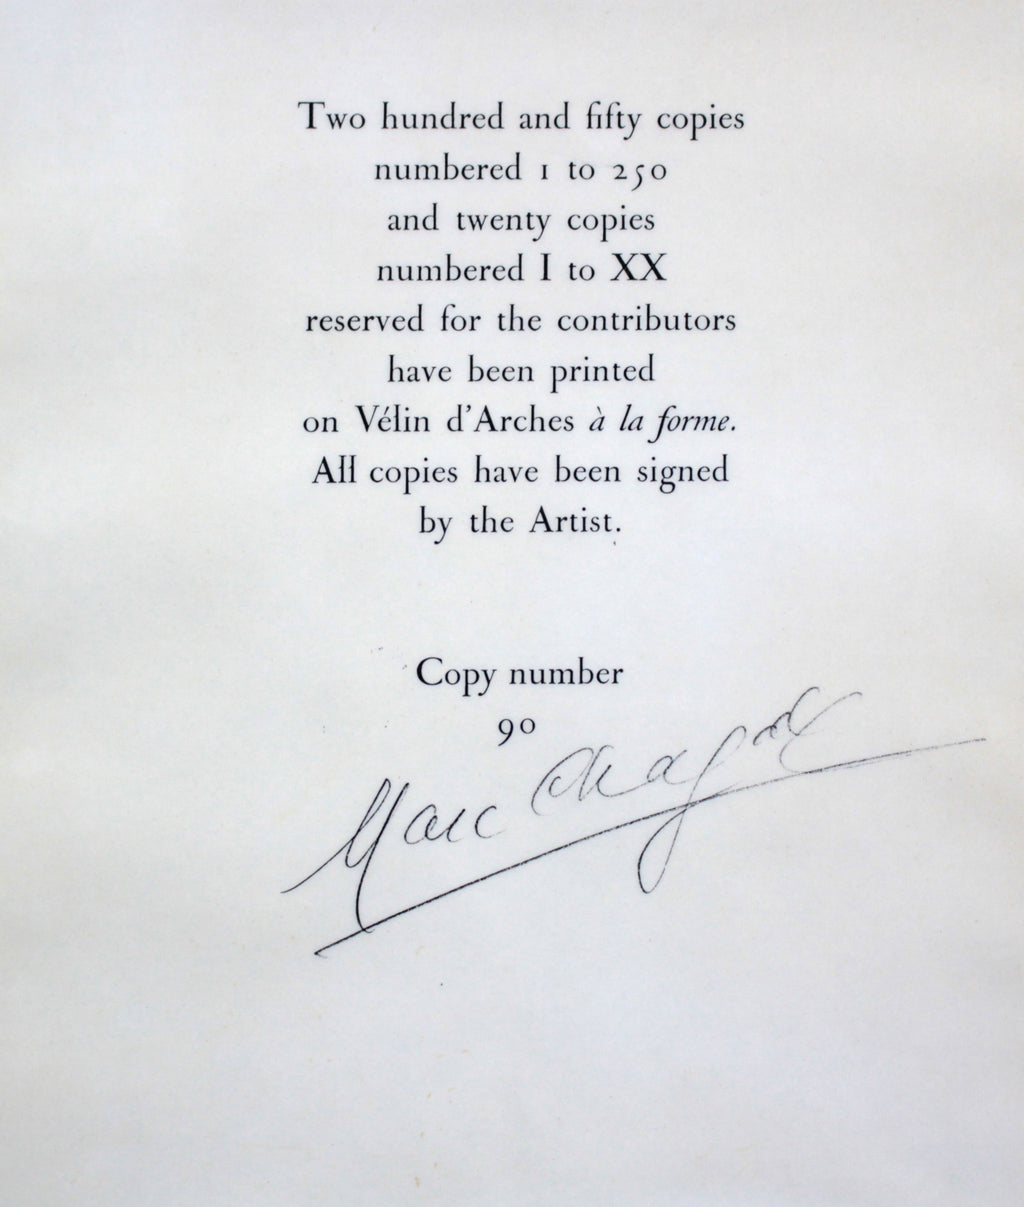 Two hundred and fifty copies
numbered 1 to 250
and twenty copies
numbered I to XX
reserved for the contributors
have been printed
on Vélin d'Arches à la forme.
All copies have been signed
by the Artist.
Copy number
90
Marc Chagall